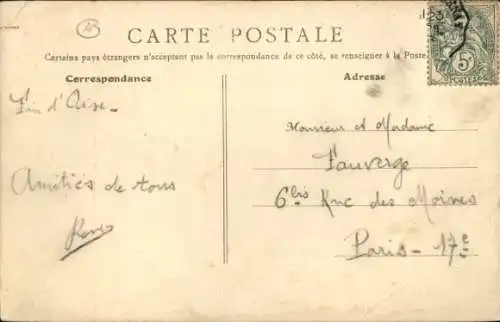 CARTE POSTALE
Certains pays étrangers n'acceptent pas la correspondance de ce côté, se renseigner à la Poste
Correspondance
Adresse
5c
POSTES
Fin d'Aise_
Amitiés de tous
Monsieur et Madame
Fauverge
6 bis Rue des Moines
Paris - 17e